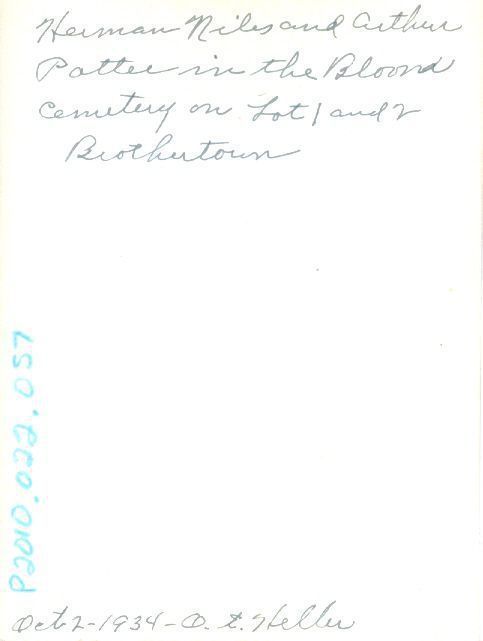 Herman Niles and Arthur
Pattee in the Bloond
Cemetery on Lot 1 and 2
Brothertown
P2010.022.057
Oct-2-1934-O. t. Heller